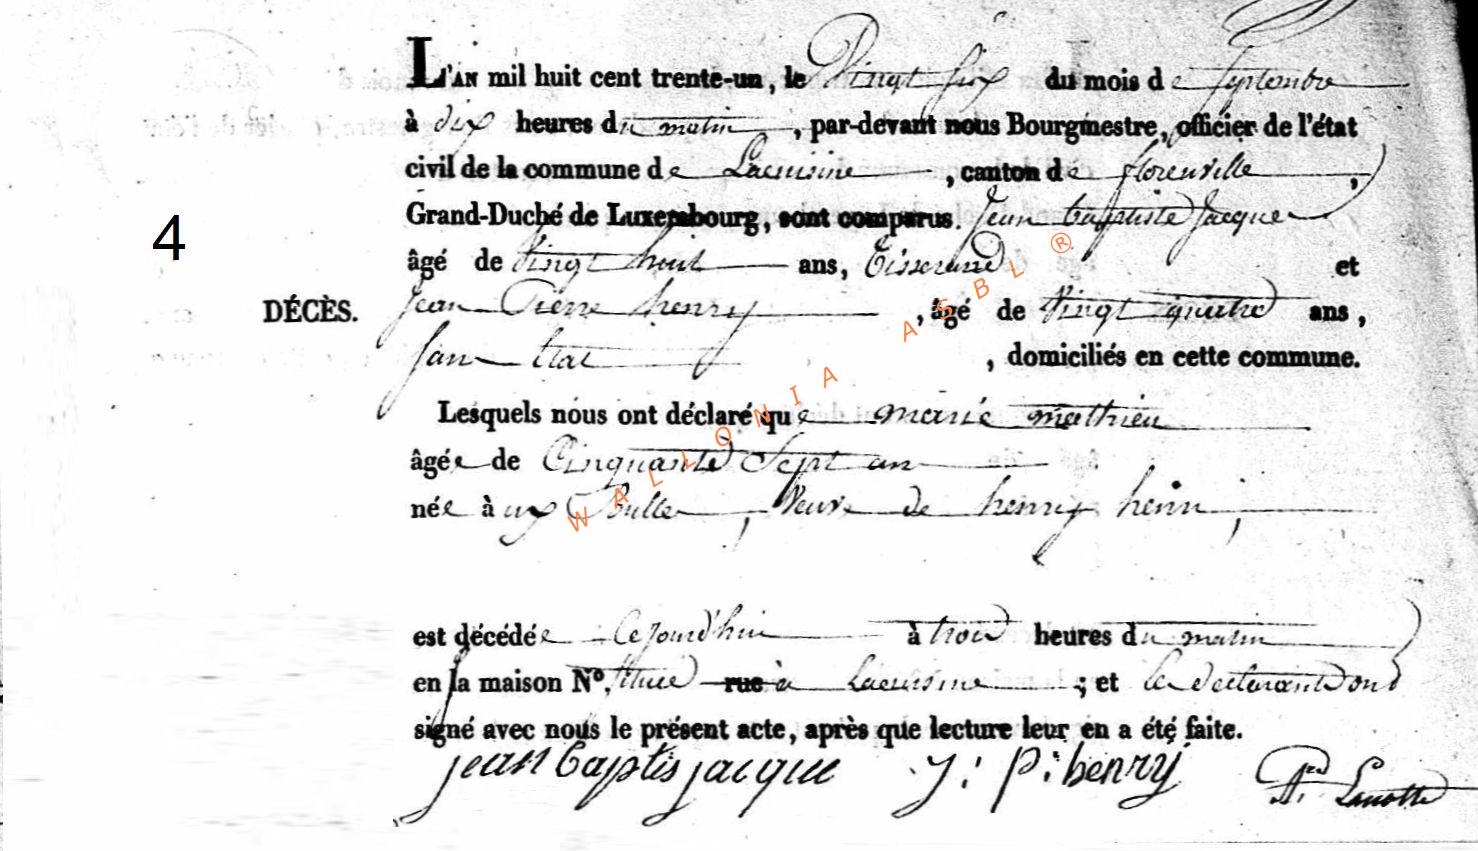 L'AN mil huit cent trente-un, le Vingt six du mois de Septembre
à dix heures du matin, par-devant nous Bourgmestre, officier de l'état
civil de la commune de Lacuisine, canton de florenville,
Grand-Duché de Luxembourg, sont comparus. Jean baptiste Jacque
âgé de Vingt huit ans, Tisserand et
4
DÉCÈS.
Jean Pierre henry, âgé de Vingt quatre ans,
San Etat, domiciliés en cette commune.
Lesquels nous ont déclaré que marie mathieu
âgée de Cinquante Sept an
née à ux Bulle, Veuve de henry henin,
est décédée Cejourd'hui à trois heures du matin
en la maison No. située rue à Lacuisine; et les déclarants ont
signé avec nous le présent acte, après que lecture leur en a été faite.
jean baptis jacque J: p: henry Lamotte
WALLONIA ASBL ®